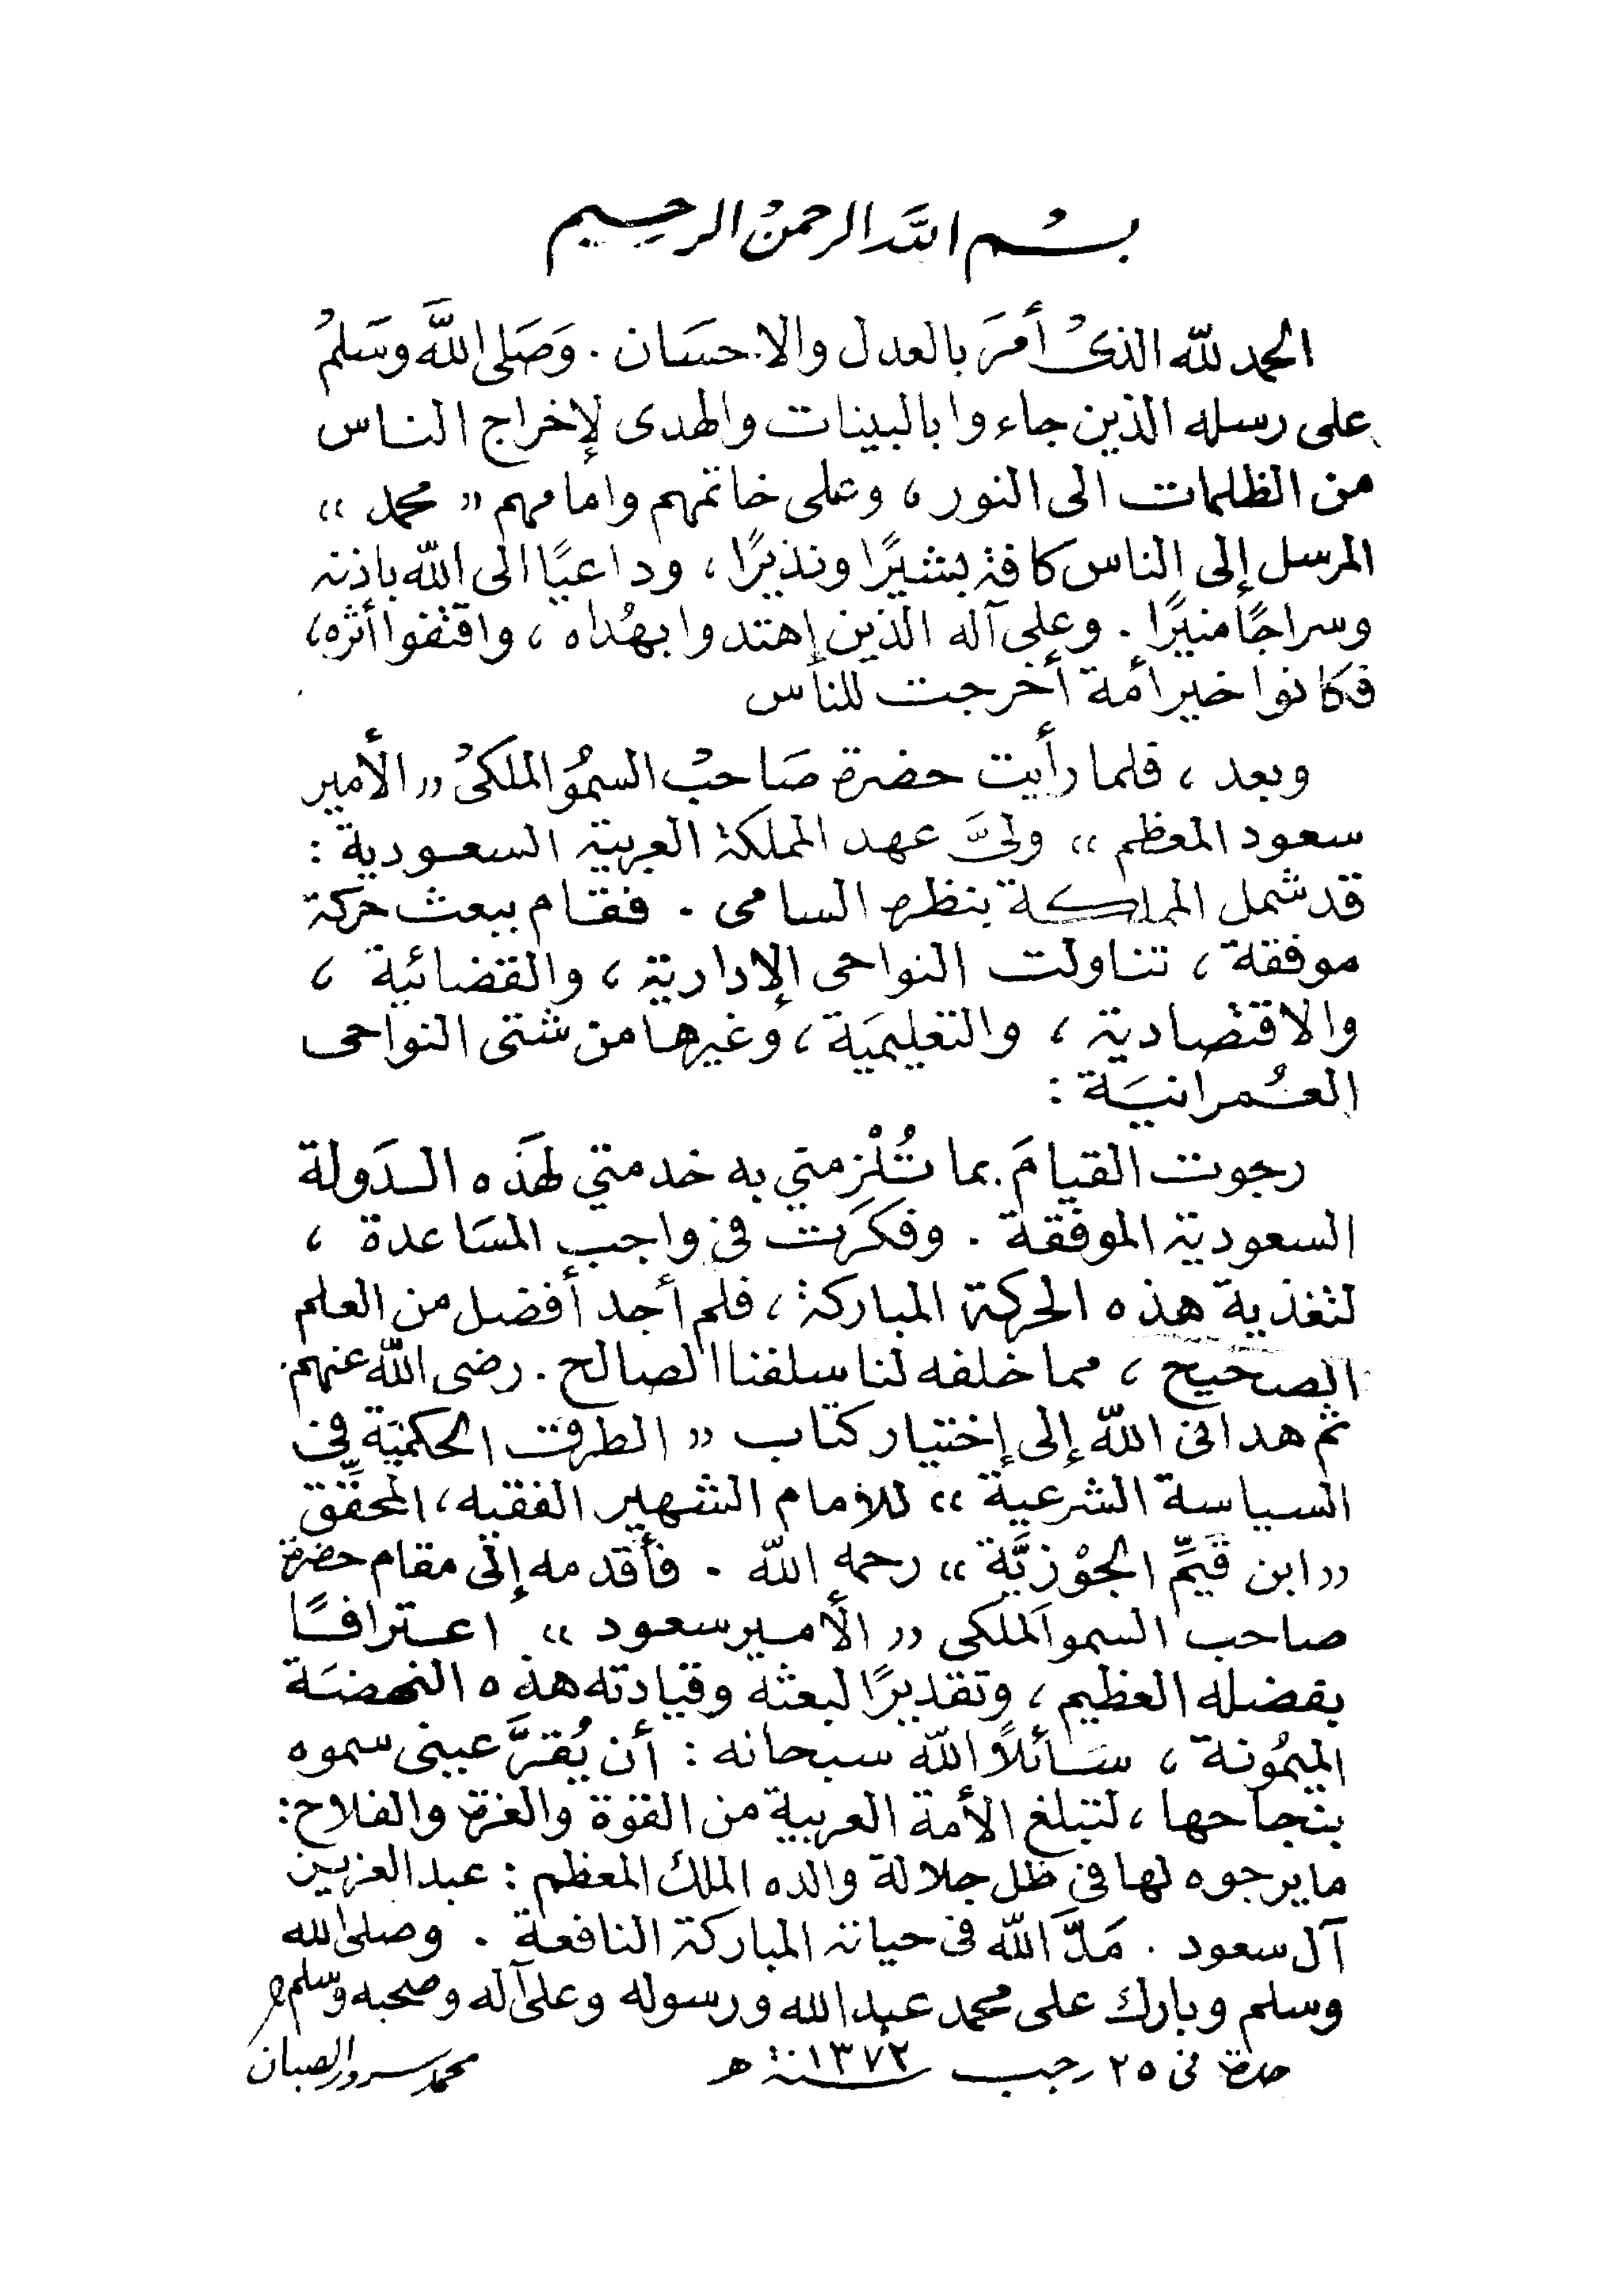 بسم الله الرحمن الرحيم
الحمد لله الذي أمَرَ بالعدل والإحسَان . وَصَلى اللَّه وسَلم
على رسله الذين جاءوا بالبينات والهدى لإخراج الناس
من الظلمات الى النور ، وعلى خاتمهم وامامهم « محمد »
المرسل إلى الناس كافة بشيرًا ونذيرًا ، وداعيًا الى اللّه باذنه
وسراجًا منيرًا . وعلى آله الذين إهتدوا بهُداه ، واقتفوا أثره ،
فكانوا خير أمة أخرجت للناس
وبعد ، فلما رأيت حضرة صَاحب السمُو الملكي « الأمير
سعود المعظم » وليَّ عهد المملكة العربية السعودية :
قد شمل المملكة بنظره السامى . فقام ببعث حركة
موفقة ، تناولت النواحى الإدارية ، والقضائية ،
والاقتصادية ، والتعليميَة ، وغيرها من شتى النواحى
العُمرانيَة :
رجوت القيامَ بما تُلْزمني به خدمتي لهَذه الدَولة
السعودية الموفقة . وفكَرت في واجب المسَاعدة ،
لتغذية هذه الحركة المباركة ، فلم أجد أفضل من العلم
الصحيح ، مما خلفه لنا سلفنا الصالح . رضى اللّه عنهم .
ثم هدانى اللّه إلى إختيار كتاب « الطرق الحكميَة في
السياسة الشرعية » للامام الشهير الفقيه ، المحقِّق
« ابن قَيِّم الجوْزيَّة » رحمه اللّه . فأقدمه إلى مقام حضرة
صاحب السمو الملكى « الأمير سعود » اعترافًا
بفضله العظيم ، وتقديرًا لبعثه وقيادته هذه النهضَة
الميمُونة ، سَائلاً اللّه سبحانه : أن يُقرَّ عينى سموه
بنجاحها ، لتبلغ الأمة العربية من القوة والعزة والفلاح :
ما يرجوه لها في ظل جلالة والده الملك المعظم : عبد العزيز
آل سعود . مَدَّ اللّه فى حياته المباركة النافعة . وصلى الله
وسلم وبارك على محمد عبد الله ورسوله وعلى آله وصحبه وسلم
جدة فى ٢٥ رجب سنة ١٣٧٢ هـ
محمد سرور الصبان